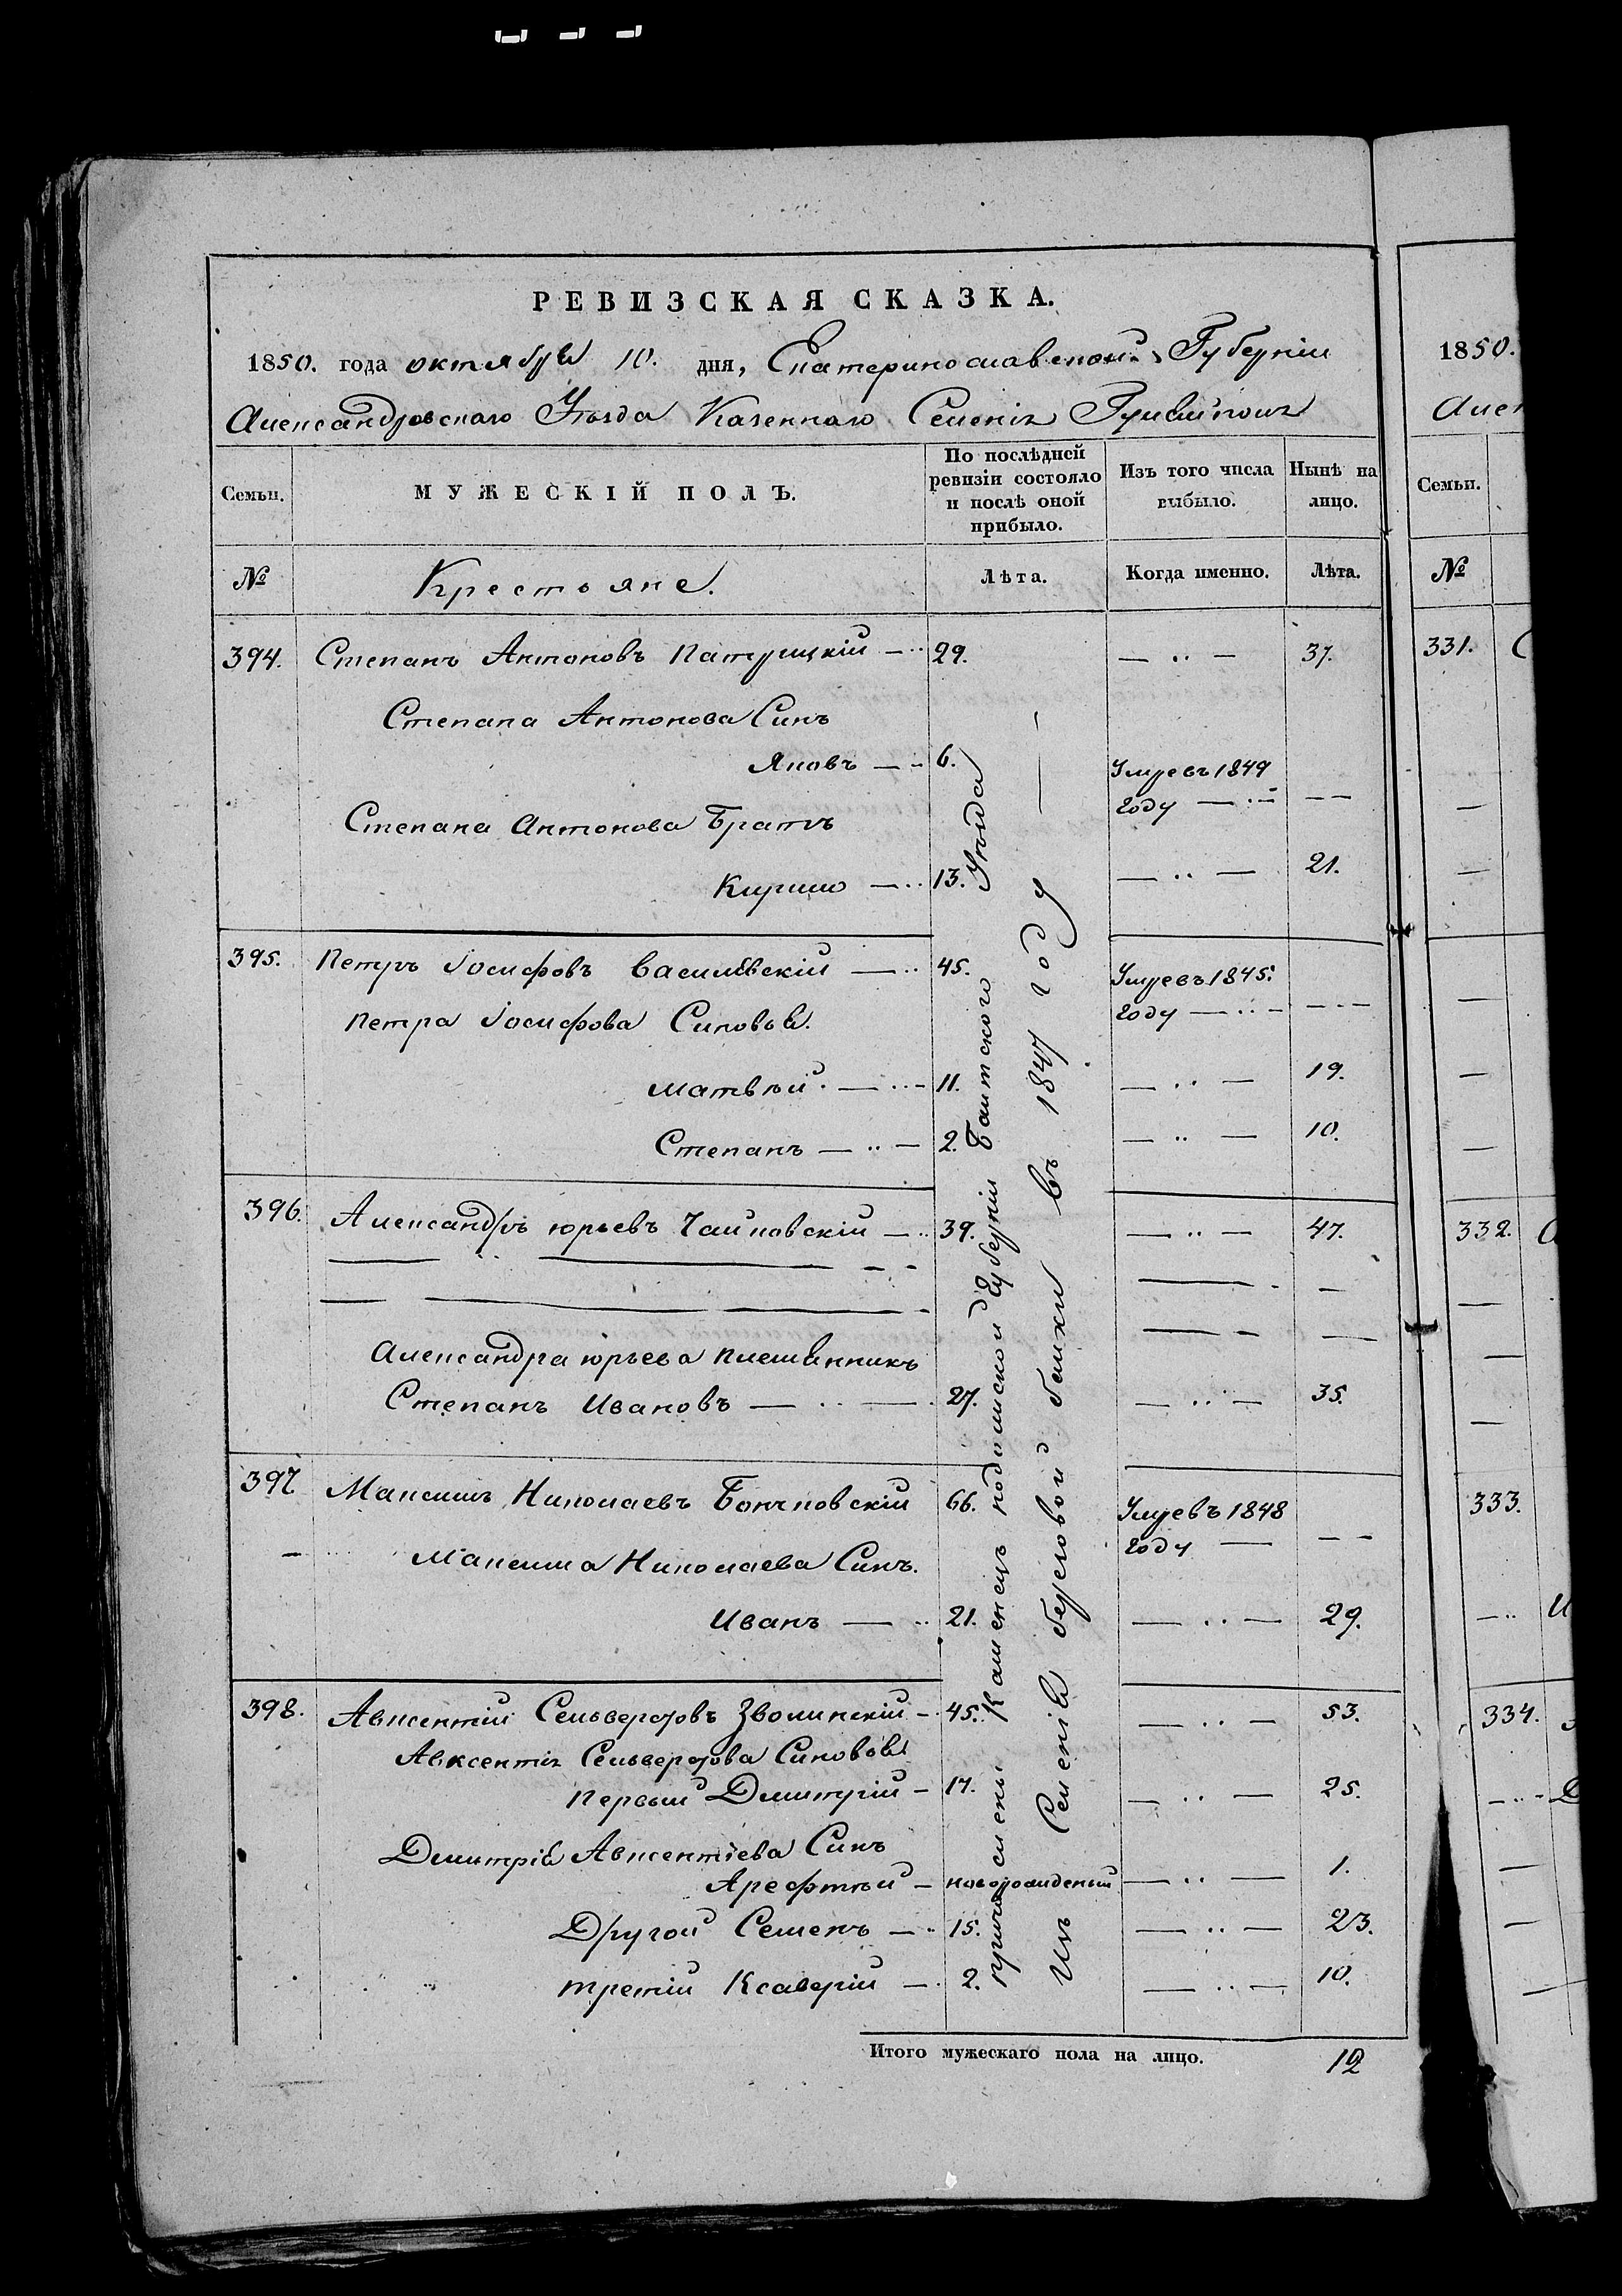 РЕВИЗСКАЯ СКАЗКА.
1850. года октября 10. дня, Екатеринославской Губерніи
Александровскаго Уѣзда Казеннаго Селенія
Семьи. МУЖЕСКІЙ ПОЛЪ. По послѣдней ревизіи состояло и послѣ оной прибыло. Изъ того числа выбыло. Нынѣ на лицо.
№ Крестьяне. Лѣта. Когда именно. Лѣта.
394. Степанъ Антоновъ 29. — .. — 37.
Степана Антонова Синъ
Яковъ — 6. Умревъ 1849
году — — —
Степана Антонова Братъ
Кирило — .. 13. — .. — 21.
395. Петръ Іосифовъ Василевскій — .. 45. Умревъ 1845.
году — .. — — . —
Петра Іосифова Синовья.
Матвѣй. — .. — 11. — .. — 19.
Степанъ — .. — 2. — .. — 10.
396. Александръ Юрьевъ Чайковскій — .. 39. — .. — 47.
Александра Юрьева племянникъ
Степанъ Ивановъ — .. — 27. — .. — 35.
397 Максимъ Николаевъ 66. Умревъ 1848
году — — —
Максима Николаева Синъ.
Иванъ — .. 21. — .. — 29.
398. Авксентій Сельверстовъ Зволинскій — 45. — .. — 53.
Авксентія Сельверстова Синовья
Первый Дмитрій — 17. — .. — 25.
Дмитрія Авксентіева Синъ
Арефтѣй — новорожденый — .. — 1.
Другой Семенъ — .. 15. — .. — 23.
третій Ксаверій — . 2. — .. — 10.
причислены Каменецъ подольской Губерніи Балтского Уѣзда
Изъ Селенія балки въ 1847 году —
Итого мужескаго пола на лицо. 12
1850.
Семьи.
№
331.
332.
333.
334.